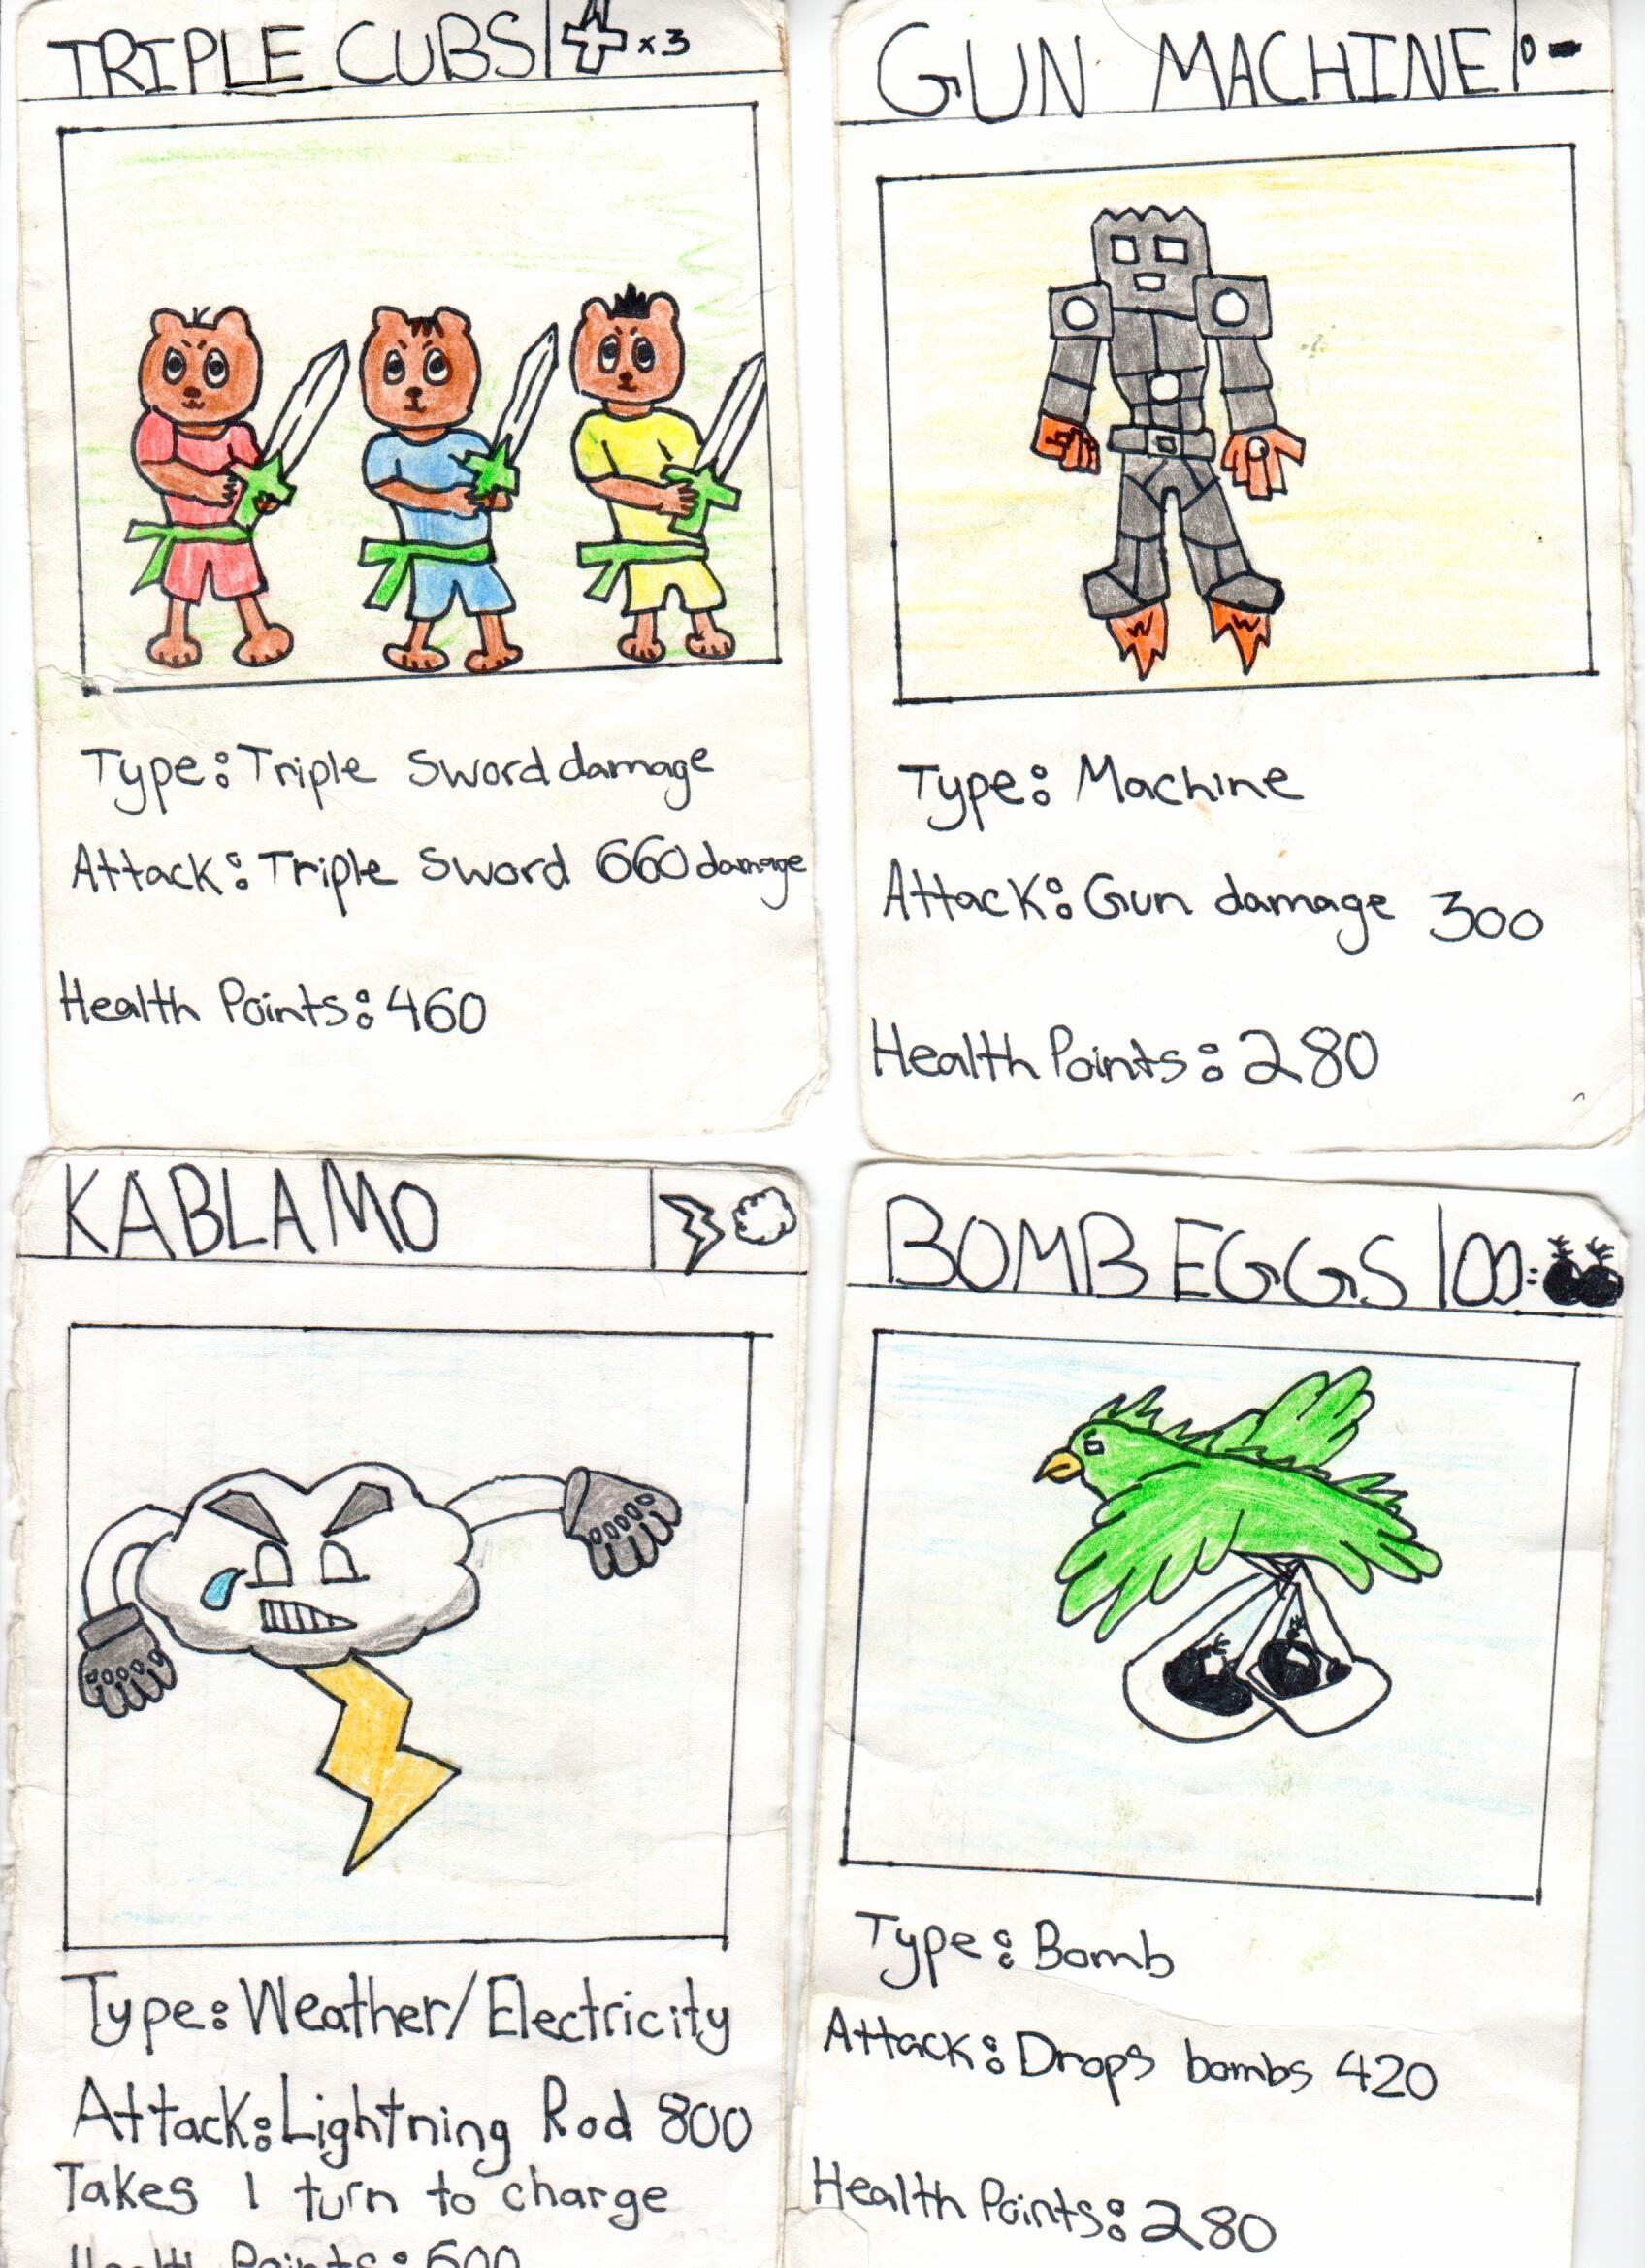 TRIPLE CUBS x3
Type: Triple Sword damage
Attack: Triple Sword 660 damage
Health Points: 460
GUN MACHINE
Type: Machine
Attack: Gun damage 300
Health Points: 280
KABLAMO
Type: Weather/Electricity
Attack: Lightning Rod 800
Takes 1 turn to charge
Health Points: 600
BOMB EGGS
Type: Bomb
Attack: Drops bombs 420
Health Points: 280